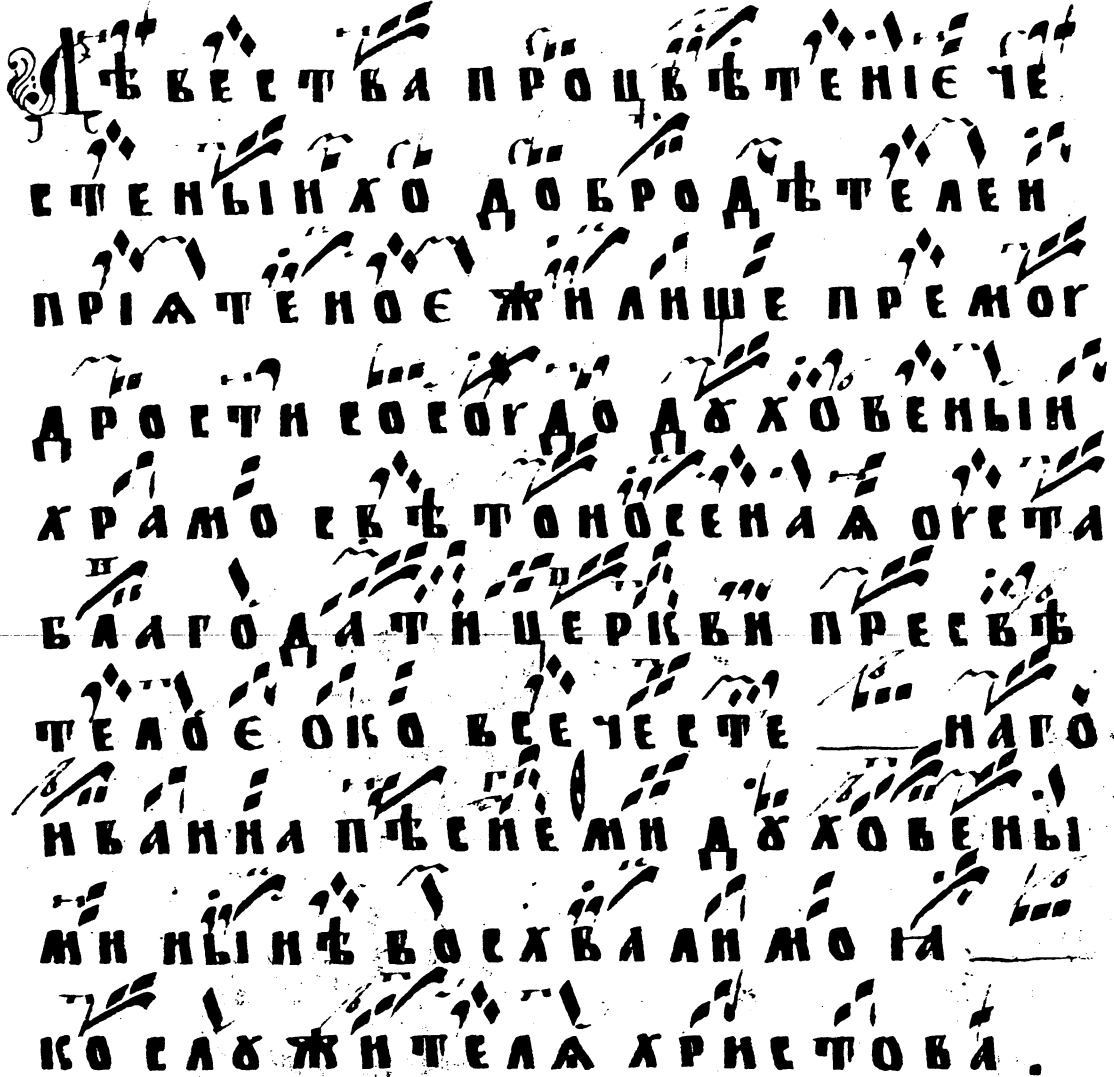 Дѣвества процвѣтенїє че
стеныихо добродѣтелеи
прїѧтеноє жилише премог
дрости сосогдо дꙋховеныи
храмо свѣтоносенаѧ огста
благодати церкви пресвѣ
телоє око всечесте наго
иванна пѣснеми дꙋховены
ми нынѣ восхвалимо ꙗ
ко слꙋжителѧ христова.